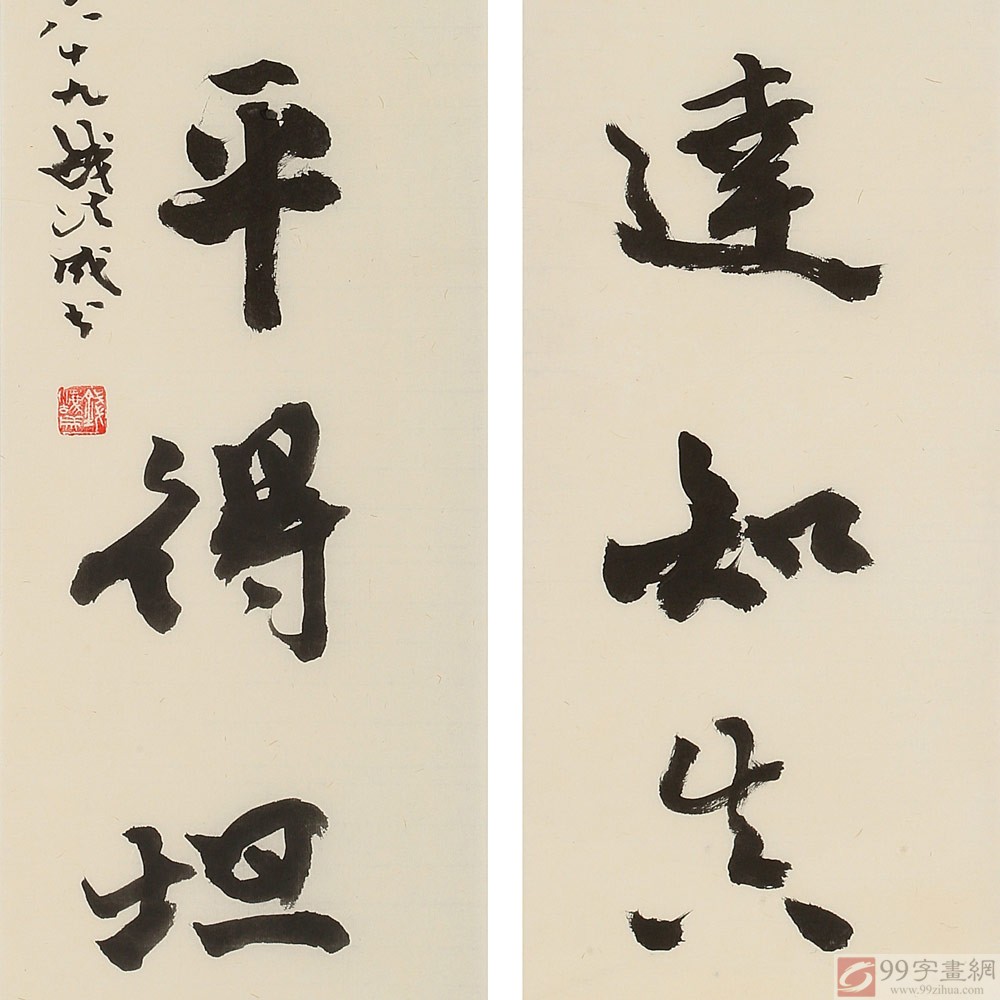 達知真
平得坦
八十九錢法成书
99字畫網
www.99zihua.com